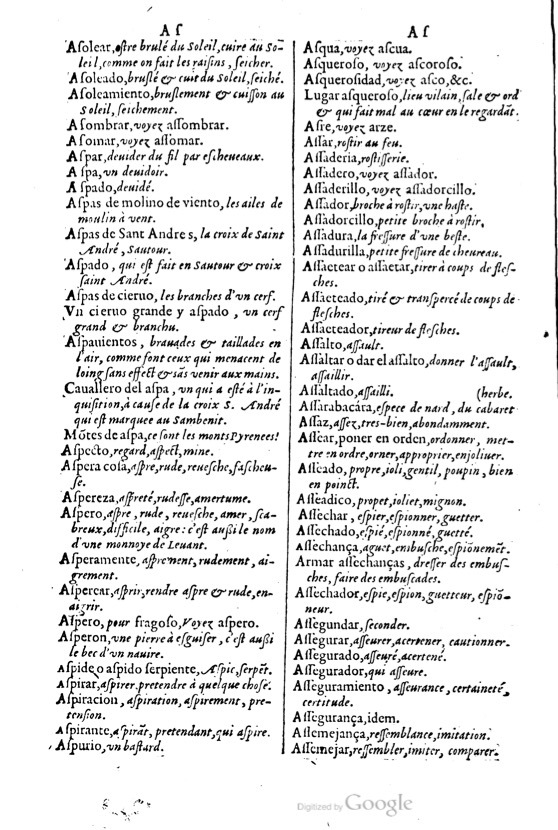 A ſ
Aſolear, eſtre brulé du Soleil, cuire au So-
leil, comme on fait les raiſins, ſeicher.
Aſoleado, bruſlé & cuit du Soleil, ſeiché.
Aſoleamiento, bruſlement & cuiſſon au
Soleil, ſeichement.
A ſombrar, voyez aſſombrar.
A ſomar, voyez aſſomar.
A ſpar, deuider du fil par eſcheueaux.
A ſpa, vn deuidoir.
A ſpado, deuidé.
Aſpas de molino de viento, les ailes de
moulin à vent.
Aſpas de Sant Andres, la croix de Saint
André, Sautour.
Aſpado, qui eſt fait en Sautour & croix
ſaint André.
Aſpas de cieruo, les branches d'vn cerf.
Vn cieruo grande y aſpado, vn cerf
grand & branchu.
Aſpauientos, brauades & taillades en
l'air, comme font ceux qui menacent de
loing ſans effect & sãs venir aux mains.
Cauallero del aſpa, vn qui a eſté à l'in-
quiſition, à cauſe de la croix S. André
qui eſt marquee au Sambenit.
Mõtes de aſpa, ce ſont les monts Pyrenees!
Aſpecto, regard, aſpect, mine.
Aſpera coſa, aſpre, rude, reueſche, faſcheu-
ſe.
Aſpereza, aſpreté, rudeſſe, amertume.
Aſpero, aſpre, rude, reueſche, amer, ſca-
breux, difficile, aigre: c'eſt auſſi le nom
d'vne monnoye de Leuant.
Aſperamente, aſprement, rudement, ai-
grement.
Aſpercar, aſprir, rendre aſpre & rude, en-
aigrir.
Aſpero, pour fragoſo, Voyez aſpero.
Aſperon, vne pierre à eſguiſer, c'eſt auſſi
le bec d'vn nauire.
Aſpide o aſpido ſerpiente, Aſpic, ſerpẽt.
Aſpirar, aſpirer, pretendre à quelque choſe.
Aſpiracion, aſpiration, aſpirement, pre-
tenſion.
Aſpirante, aſpirãt, pretendant, qui aſpire.
Aſpurio, vn baſtard.
A ſ
Aſqua, voyez aſcua.
Aſqueroſo, voyez aſcoroſo.
Aſqueroſidad, voyez aſco, &c.
Lugar aſqueroſo, lieu vilain, ſale & ord
& qui fait mal au cœur en le regardãt.
Aſre, voyez arze.
Aſſar, roſtir au feu.
Aſſaderia, roſtiſſerie.
Aſſadero, voyez aſſador.
Aſſaderillo, voyez aſſadorcillo.
Aſſador, broche à roſtir, vne haſte.
Aſſadorcillo, petite broche à roſtir,
Aſſadura, la freſſure d'vne beſte.
Aſſadurilla, petite freſſure de cheureau.
Aſſaetear o aſſaetar, tirer à coups de fleſ-
ches.
Aſſaeteado, tiré & tranſpercé de coups de
fleſches.
Aſſaeteador, tireur de fleſches.
Aſſalto, aſſault.
Aſſaltar o dar el aſſalto, donner l'aſſault,
aſſaillir.
Aſſaltado, aſſailli. (herbe.
Aſſarabacára, eſpece de nard, du cabaret
Aſſaz, aſſez, tres-bien, abondamment.
Aſſear, poner en orden, ordonner, met-
tre en ordre, orner, approprier, enjoliuer.
Aſſeado, propre, ioli, gentil, poupin, bien
en poinct.
Aſſeadico, propet, ioliet, mignon.
Aſſechar, eſpier, eſpionner, guetter.
Aſſechado, eſpié, eſpionné, guetté.
Aſſechança, aguet, embuſche, eſpiõnemẽt.
Armar aſſechanças, dreſſer des embuſ-
ches, faire des embuſcades.
Aſſechador, eſpie, eſpion, guetteur, eſpiõ-
neur.
Aſſegundar, ſeconder.
Aſſegurar, aſſeurer, acertener, cautionner.
Aſſegurado, aſſeuré, acertené.
Aſſegurador, qui aſſeure.
Aſſeguramiento, aſſeurance, certaineté,
certitude.
Aſſegurança, idem.
Aſſemejança, reſſemblance, imitation.
Aſſemejar, reſſembler, imiter, comparer.
Digitized by Google